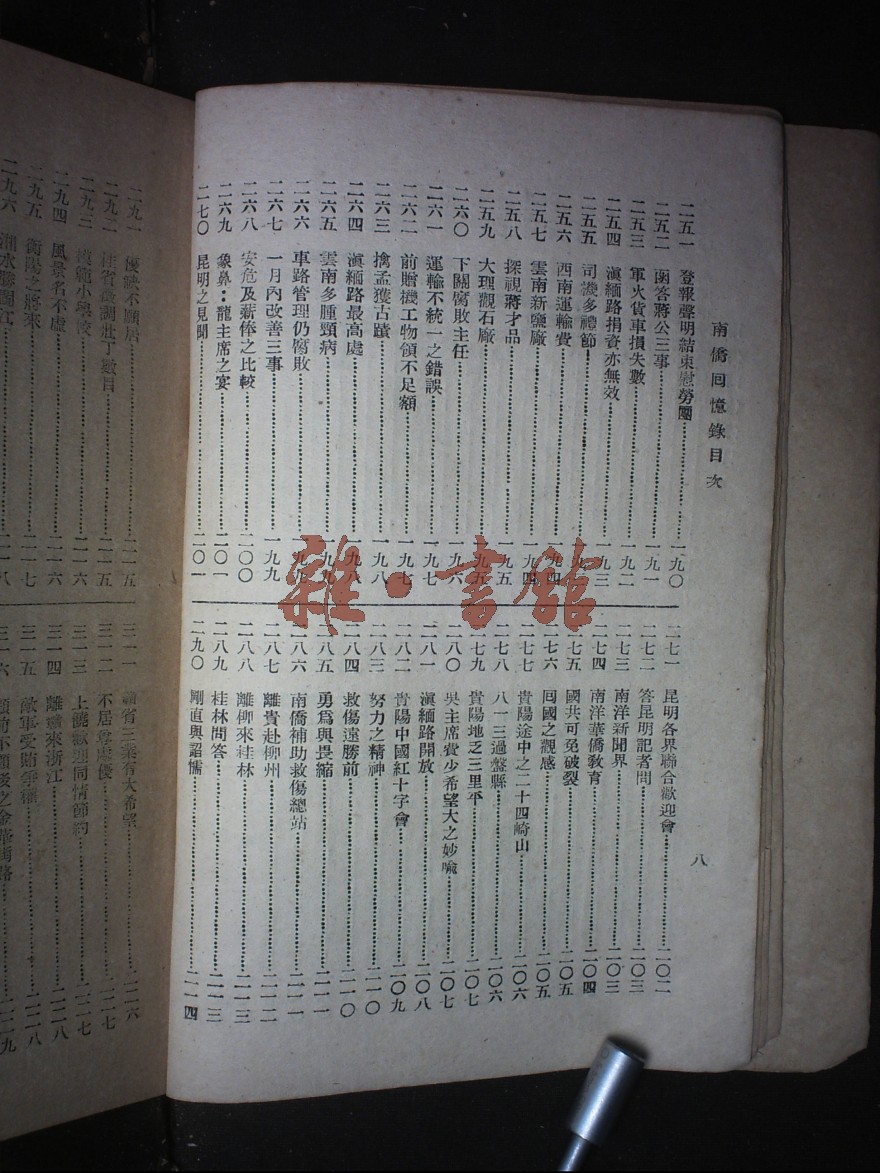 南僑回憶錄目次
八
二五一 登報聲明結束慰勞團 一九〇
二五二 函答蔣公三事 一九一
二五三 軍火貨車損失數 一九二
二五四 滇緬路捐資亦無效 一九三
二五五 司機多禮節
二五六 西南運輸費 一九四
二五七 雲南新鹽廠 一九四
二五八 探視蔣才品 一九五
二五九 大理觀石廠 一九五
二六〇 下關腐敗主任 一九六
二六一 運輸不統一之錯誤 一九七
二六二 前贈機工物領不足額 一九七
二六三 擒孟獲古蹟 一九八
二六四 滇緬路最高處 一九八
二六五 雲南多腫頸病 一九九
二六六 車路管理仍腐敗 一九九
二六七 一月內改善三事 一九九
二六八 安危及薪俸之比較 二〇〇
二六九 象鼻：龍主席之宴 二〇一
二七〇 昆明之見聞 二〇一
二七一 昆明各界聯合歡迎會 二〇二
二七二 答昆明記者問 二〇三
二七三 南洋新聞界 二〇三
二七四 南洋華僑教育 二〇四
二七五 國共可免破裂 二〇五
二七六 回國之觀感 二〇五
二七七 貴陽途中之二十四崎山 二〇六
二七八 八一三過盤縣 二〇六
二七九 貴陽地乏三里平 二〇七
二八〇 吳主席費少希望大之妙喻 二〇七
二八一 滇緬路開放 二〇八
二八二 貴陽中國紅十字會 二〇九
二八三 努力之精神 二一〇
二八四 救傷遠勝前 二一〇
二八五 勇爲與畏縮 二一一
二八六 南僑補助救傷總站 二一一
二八七 離貴赴柳州 二一二
二八八 離柳來桂林 二一三
二八九 桂林問答 二一三
二九〇 剛直與諂懦 二一四
二九一 優缺不願居 二一五
二九二 桂省激測壯丁數目 二一五
二九三 模範小學校 二一六
二九四 風景名不虛 二一六
二九五 衡陽之蔣來 二一七
二九六 湘水勝閩江 二一八
三一一 贛省三業答大希望 二二六
三一二 不居尊處優 二二七
三一三 上饒歡迎同情節約 二二七
三一四 離贛來浙江 二二八
三一五 敵軍受賄 二二八
三一六 顧前不顧後之金華馬路 二二九
雜·書館